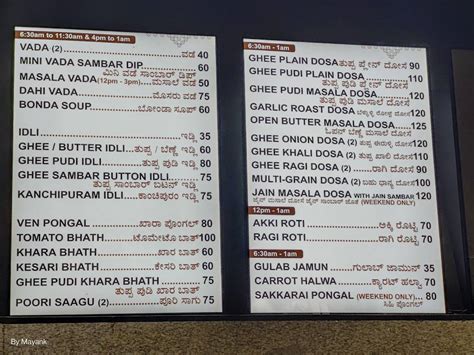 6:30am to 11:30am & 4pm to 1am
VADA (2) ವಡೆ 40
MINI VADA SAMBAR DIP 60
ಮಿನಿ ವಡೆ ಸಾಂಬಾರ್ ಡಿಪ್
MASALA VADA (12pm - 3pm) ಮಸಾಲೆ ವಡೆ 50
DAHI VADA ಮೊಸರು ವಡೆ 75
BONDA SOUP ಬೋಂಡಾ ಸೂಪ್ 60
IDLI ಇಡ್ಲಿ 35
GHEE / BUTTER IDLI ತುಪ್ಪ / ಬೆಣ್ಣೆ ಇಡ್ಲಿ 60
GHEE PUDI IDLI ತುಪ್ಪ ಪುಡಿ ಇಡ್ಲಿ 75
GHEE SAMBAR BUTTON IDLI 75
ತುಪ್ಪ ಸಾಂಬಾರ್ ಬಟನ್ ಇಡ್ಲಿ
KANCHIPURAM IDLI 75
VEN PONGAL ಖಾರಾ ಪೊಂಗಲ್ 80
TOMATO BHATH ಟೊಮೆಟೊ ಬಾತ್ 100
KHARA BHATH ಖಾರಾ ಬಾತ್ 50
KESARI BHATH ಕೇಸರಿ ಬಾತ್ 60
GHEE PUDI KHARA BHATH 75
ತುಪ್ಪ ಪುಡಿ ಖಾರ ಬಾತ್
POORI SAAGU (2) ಪೂರಿ ಸಾಗು 75
6:30am - 1am
GHEE PLAIN DOSA ತುಪ್ಪ ಪ್ಲೇನ್ ದೋಸೆ 90
GHEE PUDI PLAIN DOSA 110
ತುಪ್ಪ ಪುಡಿ ಪ್ಲೇನ್ ದೋಸೆ
GHEE PUDI MASALA DOSA 120
ತುಪ್ಪ ಪುಡಿ ಮಸಾಲೆ ದೋಸೆ
GARLIC ROAST DOSA 120
OPEN BUTTER MASALA DOSA 120
ಓಪನ್ ಬೆಣ್ಣೆ ಮಸಾಲೆ ದೋಸೆ
GHEE ONION DOSA (2) 120
GHEE KHALI DOSA (2) 110
GHEE RAGI DOSA (2) 110
MULTI-GRAIN DOSA (2) 110
JAIN MASALA DOSA WITH JAIN SAMBAR 120
(WEEKEND ONLY)
12pm - 1am
AKKI ROTI ಅಕ್ಕಿ ರೊಟ್ಟಿ 70
RAGI ROTI ರಾಗಿ ರೊಟ್ಟಿ 70
6:30am - 1am
GULAB JAMUN ಗುಲಾಬ್ ಜಾಮೂನ್ 35
CARROT HALWA ಕ್ಯಾರಟ್ ಹಲ್ವಾ 70
SAKKARAI PONGAL (WEEKEND ONLY) 60
ಸಿಹಿ ಪೊಂಗಲ್
By Mayank